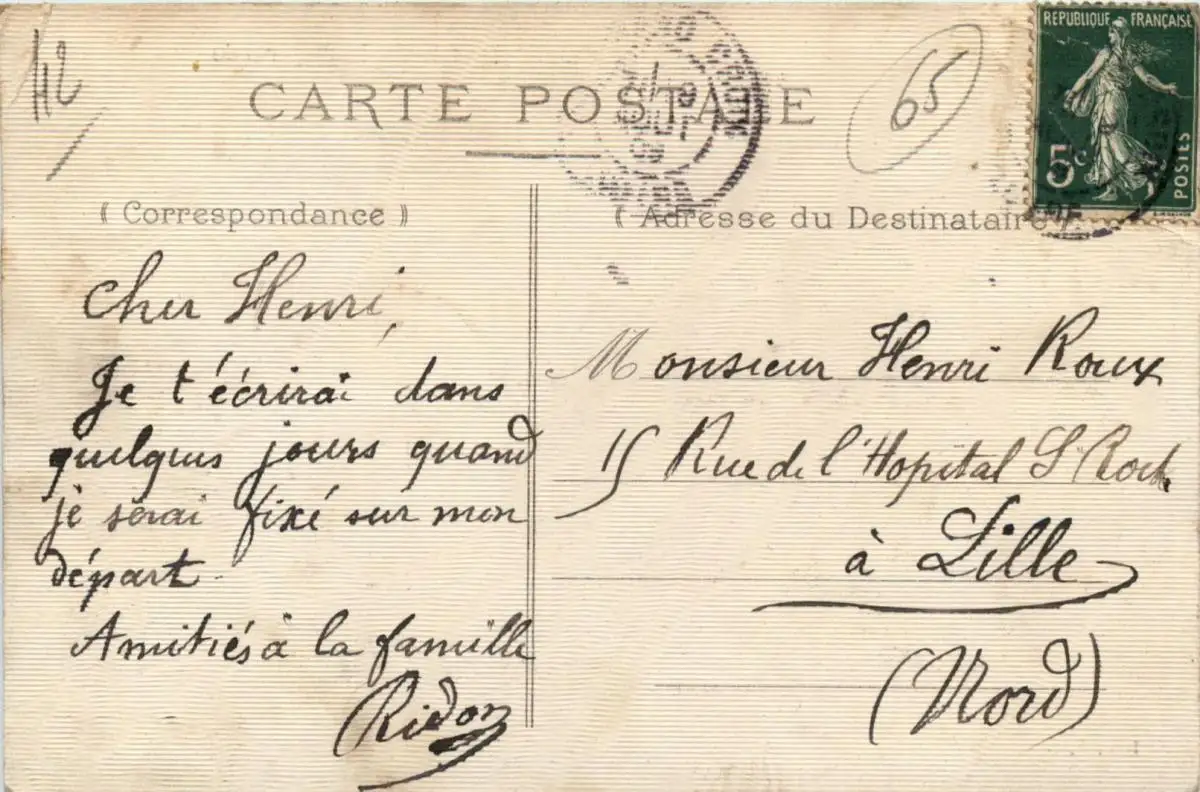 42
CARTE POSTALE
65
REPUBLIQUE FRANÇAISE
5c
POSTES
(Correspondance)
(Adresse du Destinataire
Cher Henri,
Je t'écrirai dans
quelques jours quand
je serai fixé sur mon
départ.
Amitiés à la famille
Ridon
Monsieur Henri Roux
15 Rue de l'Hopital St Roch
à Lille
(Nord)